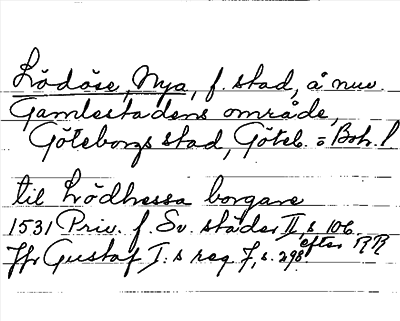 Lödöse, Nya, f. stad, å nuv.
Gamlestadens område,
Göteborgs stad, Göteb. o Boh. l
til Lödhessa borgare
1531 Priv. f. Sv. städer II, s 106.
Jfr Gustaf I:s reg. 7, s. 298 efter RR